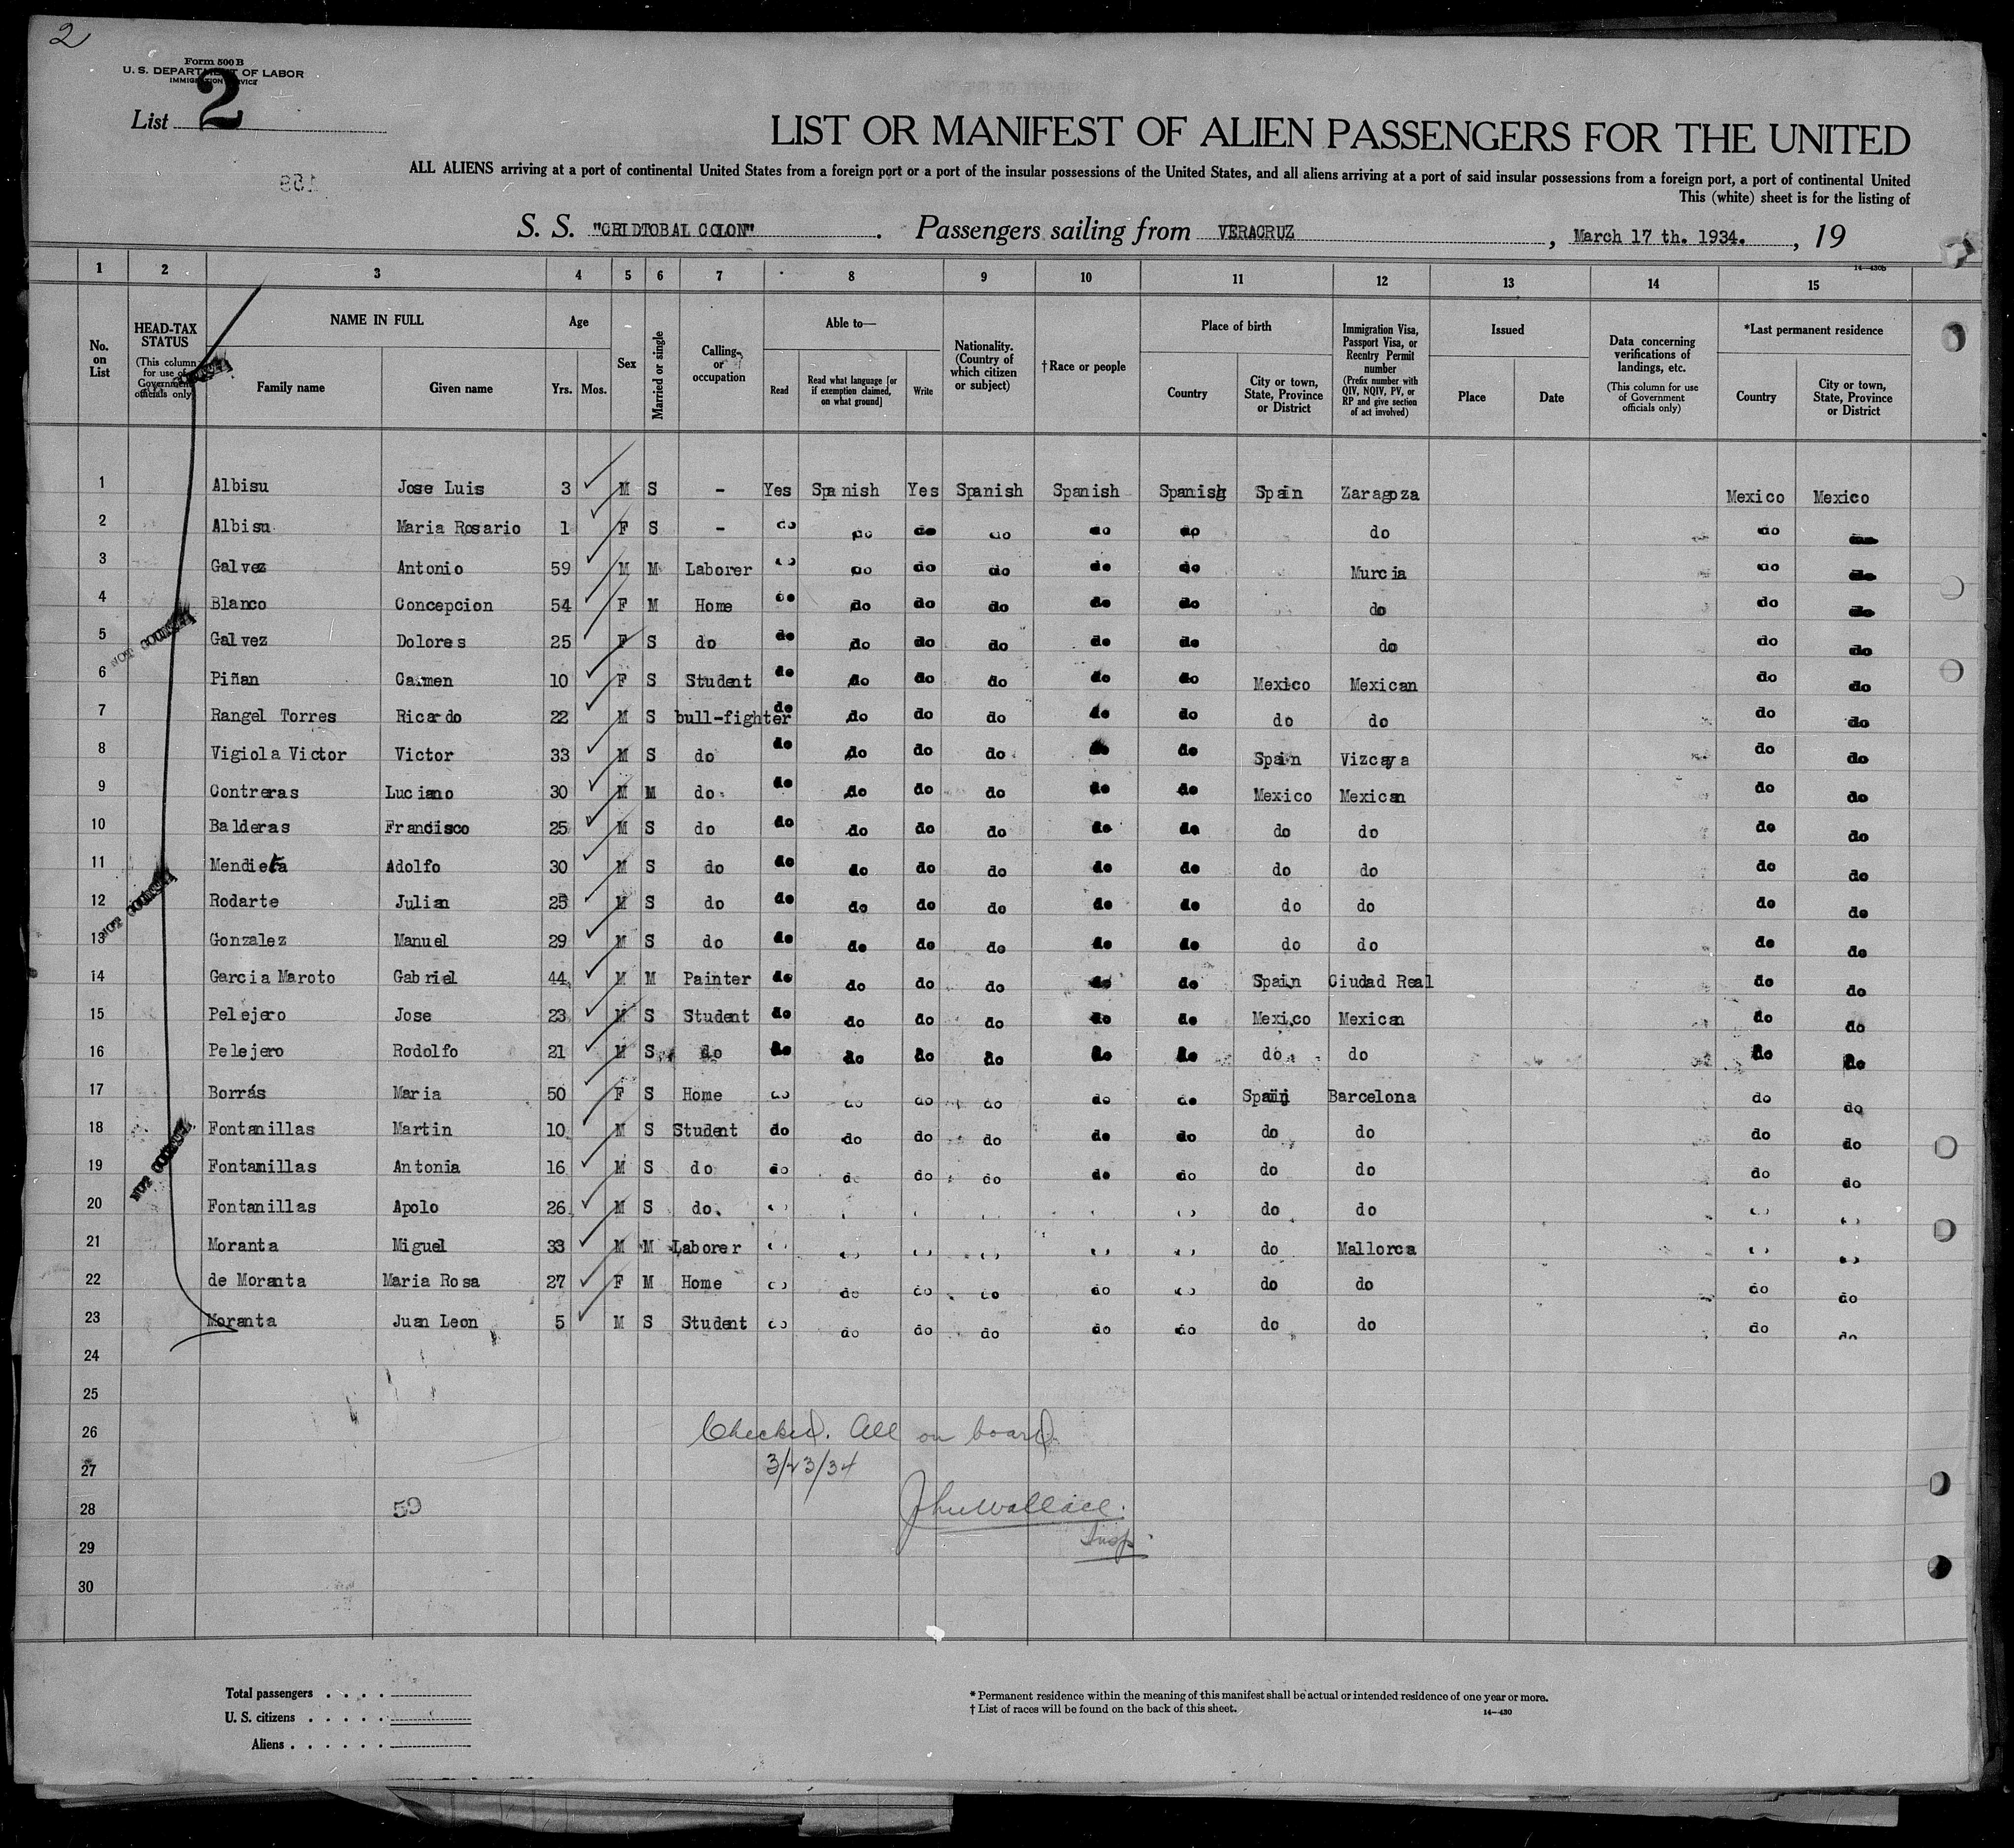 2
Form 500 B
U. S. DEPARTMENT OF LABOR
IMMIGRATION SERVICE
List 2
LIST OR MANIFEST OF ALIEN PASSENGERS FOR THE UNITED
ALL ALIENS arriving at a port of continental United States from a foreign port or a port of the insular possessions of the United States, and all aliens arriving at a port of said insular possessions from a foreign port, a port of continental United
This (white) sheet is for the listing of
S. S. "CRIDTOBAL COLON" . Passengers sailing from VERACRUZ , March 17 th. 1934. , 19
14—430b
1 2 3 4 5 6 7 8 9 10 11 12 13 14 15
No. on List
HEAD-TAX STATUS
(This column for use of Government officials only)
NAME IN FULL
Family name
Given name
Age
Yrs. Mos.
Sex
Married or single
Calling or occupation
Able to—
Read
Read what language [or if exemption claimed, on what ground]
Write
Nationality. (Country of which citizen or subject)
†Race or people
Place of birth
Country
City or town, State, Province or District
Immigration Visa, Passport Visa, or Reentry Permit number
(Prefix number with QIV, NQIV, PV, or RP and give section of act involved)
Issued
Place
Date
Data concerning verifications of landings, etc.
(This column for use of Government officials only)
*Last permanent residence
Country
City or town, State, Province or District
1 Albisu Jose Luis 3 M S - Yes Spanish Yes Spanish Spanish Spanish Spain Zaragoza Mexico Mexico
2 Albisu Maria Rosario 1 F S - do do do do do do do do do
3 Galvez Antonio 59 M M Laborer do do do do do do Murcia do do
4 Blanco Concepcion 54 F M Home do do do do do do do do do
5 Galvez Dolores 25 F S do do do do do do do do do do
6 Piñan Carmen 10 F S Student do do do do do do Mexico Mexican do do
7 Rangel Torres Ricardo 22 M S bull-fighter do do do do do do do do do do
8 Vigiola Victor Victor 33 M S do do do do do do do Spain Vizcaya do do
9 Contreras Luciano 30 M M do do do do do do do Mexico Mexican do do
10 Balderas Francisco 25 M S do do do do do do do do do do do
11 Mendieta Adolfo 30 M S do do do do do do do do do do do
12 Rodarte Julian 25 M S do do do do do do do do do do do
13 Gonzalez Manuel 29 M S do do do do do do do do do do do
14 Garcia Maroto Gabriel 44 M M Painter do do do do do do Spain Ciudad Real do do
15 Pelejero Jose 23 M S Student do do do do do do Mexico Mexican do do
16 Pelejero Rodolfo 21 M S do do do do do do do do do do do
17 Borrás Maria 50 F S Home do do do do do do Spain Barcelona do do
18 Fontanillas Martin 10 M S Student do do do do do do do do do do
19 Fontanillas Antonia 16 M S do do do do do do do do do do do
20 Fontanillas Apolo 26 M S do do do
21 Moranta Miguel 33 M M Laborer do Mallorca
22 de Moranta Maria Rosa 27 F M Home do do do do do do do do do do
23 Moranta Juan Leon 5 M S Student do do do do do do do do do do
24
25
26
27
28
29
30
NOT COUNSUL
Checked. All on board
3/23/34
50
Wallace
Insp.
Total passengers . . . .
U. S. citizens . . . . .
Aliens . . . . . .
* Permanent residence within the meaning of this manifest shall be actual or intended residence of one year or more.
† List of races will be found on the back of this sheet.
14—430